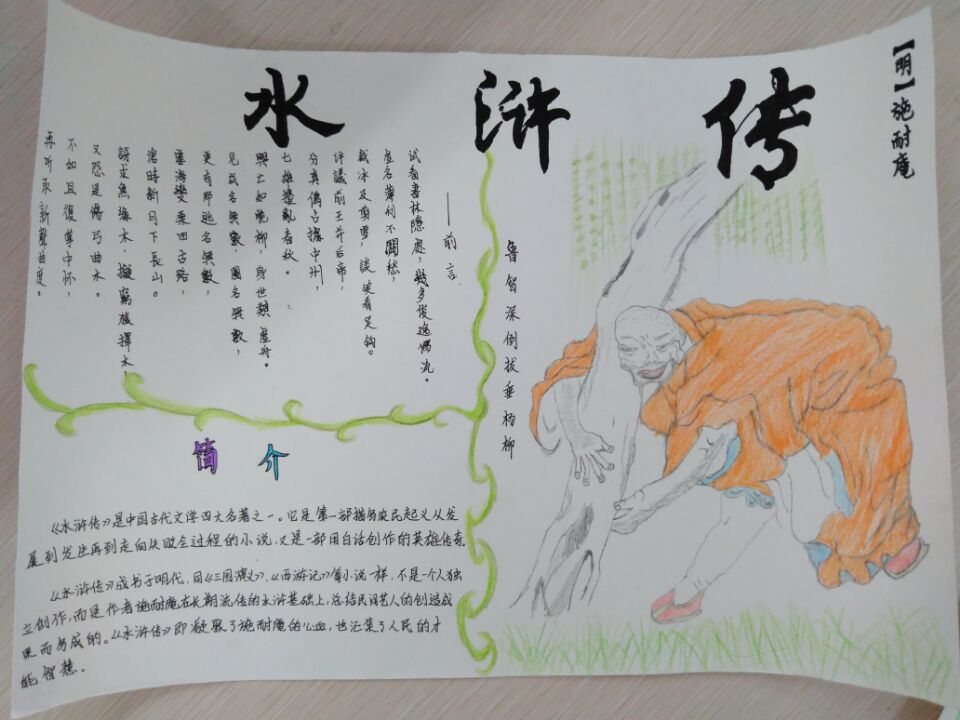 【明】施耐庵
水浒传
——前言
试看书林隐处,幾多俊逸儒流。
虚名薄利不關愁,
裁冰及剪雪,談笑看吴钩。
評議前王并后帝,
分真偽占據中州,
七雄擾亂春秋。
興亡如脆柳,身世類虚舟。
見成名無數,圖名無數,
更有那逃名無數,
霎海變桑田古路,
滄時新月下長山。
訝求魚緣木,擬窮猿擇木
又恐是傷弓曲木。
不如且復掌中杯,
再听取新聲曲度。
鲁智深倒拔垂杨柳
简介
《水浒传》是中国古代文学四大名著之一。它是第一部描写农民起义从发
展到发生再到走向失败全过程的小说,又是一部用白话创作的英雄传奇。
《水浒传》成书于明代,同《三国演义》、《西游记》等小说一样,不是一个人独
立创作,而是作者施耐庵在长期流传的水浒基础上,总结民间艺人的创造成
果而写成的。《水浒传》即凝聚了施耐庵的心血,也汇集了人民的才
能智慧。